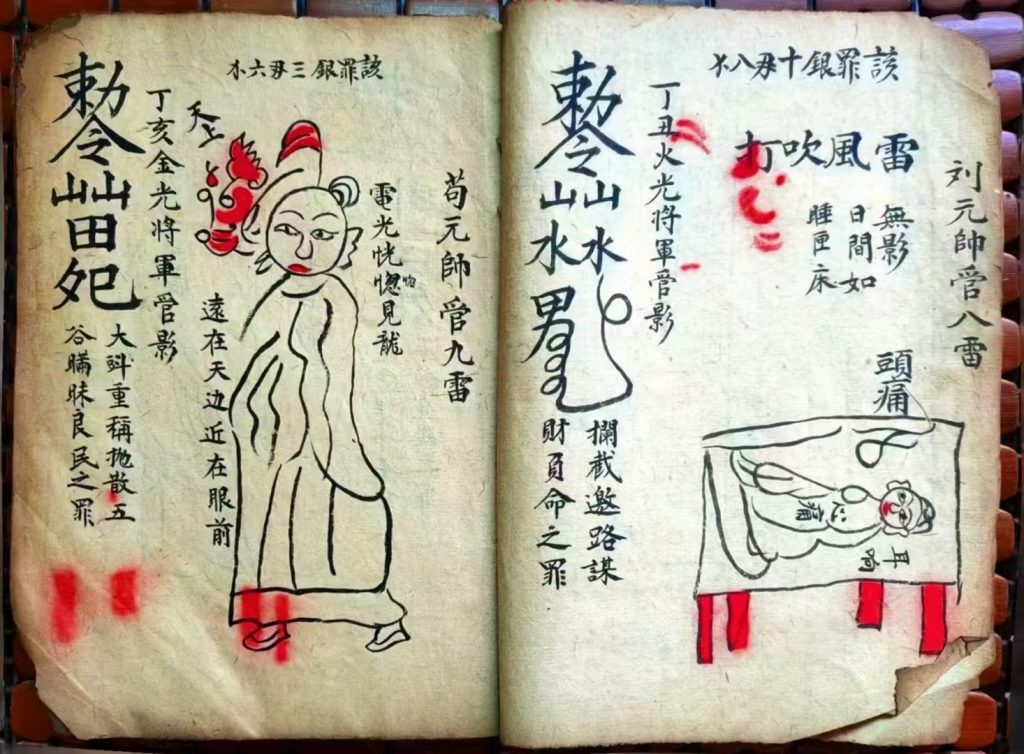 該罪銀十毋八
刘元帥管八雷
雷風吹打
無影
日間如
睡匣床
頭痛
耳响
心痛
丁丑火光將軍管影
勅令山山水水男
攔截邀路謀
財負命之罪
該罪銀三毋六
苟元帥管九雷
電光恍惚見龍
遠在天边近在眼前
天上
丁亥金光將軍管影
勅令山山田
大斗重稱抛散五
谷瞞昧良民之罪